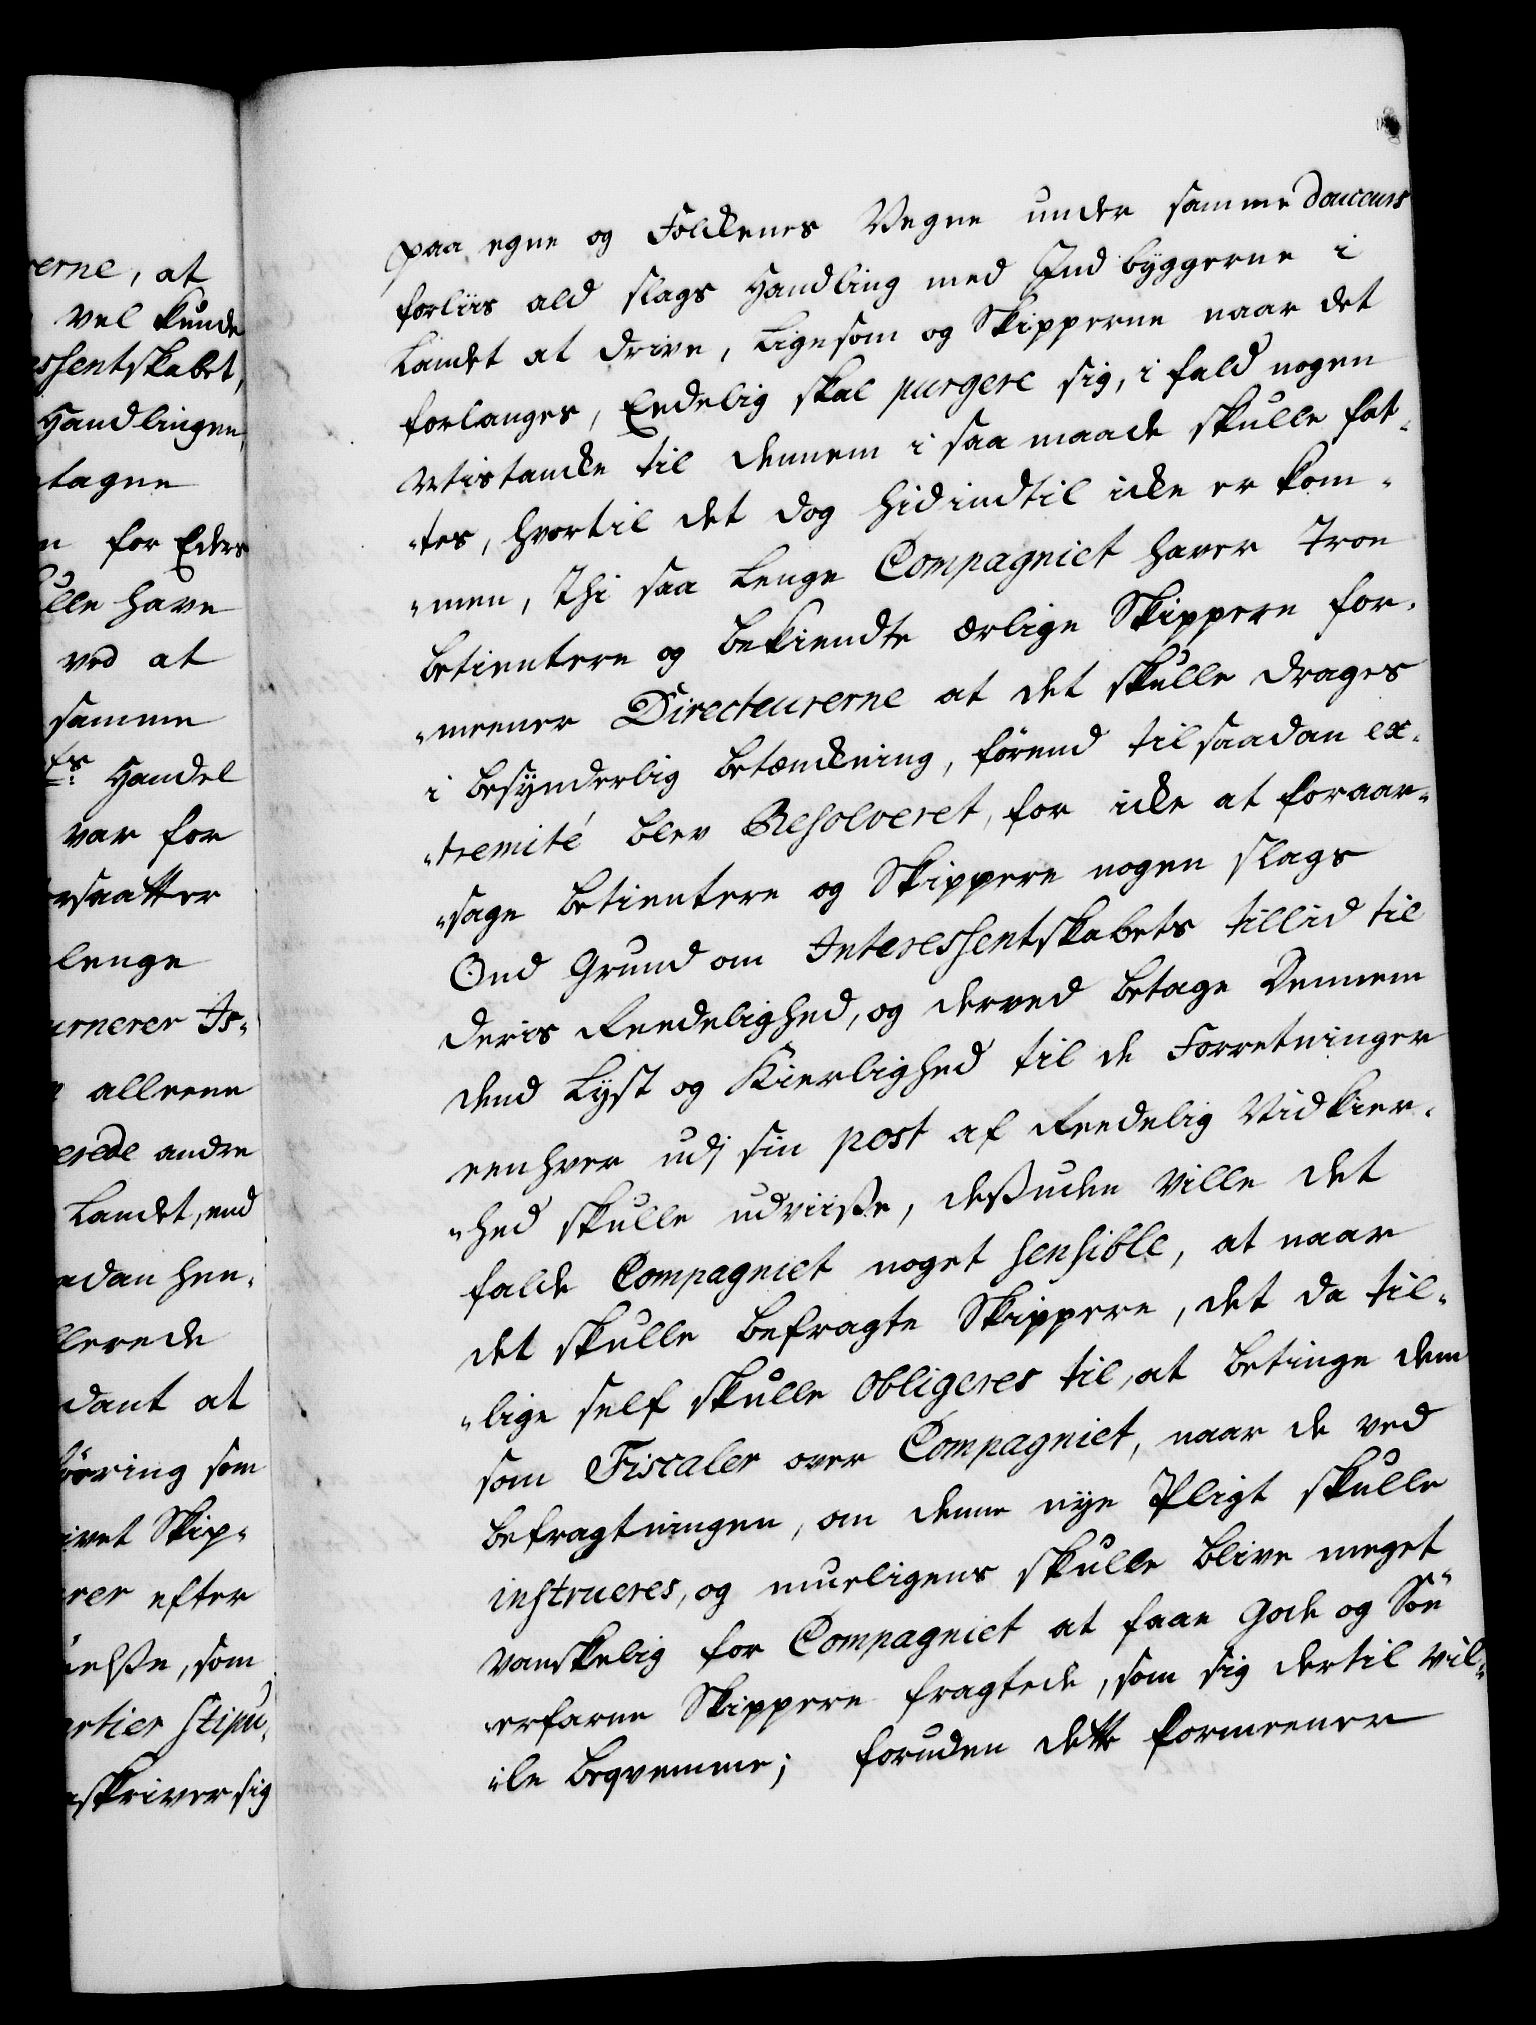 erne, at
vel kunde
essentskabet,
Handlingen
tagne
for Eders
ulle have
ved at
samme
Handel
var for
ersaatter
lenge
urnerer Is-
alleene
erede andre
Landet, end
adan hen-
llerede
dant at
øring som
ivet Skip-
rer efter
elsse, som
artier stipu-
skriver sig
paa egne og Folckenes Vegne under samme Douceurs
forliis ald slags Handling med Indbyggerne i
Landet at drive, Ligesom og Skipperne naar det
forlanges, Eedelig skal purgere sig, i fald nogen
Mistancke til dennem i saa maade skulle fat-
-tes, hvortil det dog hidindtil icke er kom-
-men, Thi saa Lenge Compagniet haver Troe
betientere og bekiendte ærlige Skippere for-
-meener Directeurerne at det skulle drages
i besynderlig betænckning, førend til saadan ex-
-tremité blev Resolveret, for icke at foraar-
-sage betientere og Skippere nogen slags
Ond Grund om Interessentskabets tillid til
deris Reedelighed, og derved betage Dennem
dend Lyst og Kierlighed til de Forretninger
eenhver udj sin post af Reedelig Nidkier-
-hed skulle udviisse, dessuden Ville det
falde Compagniet noget sensible, at naar
det skulle befragte Skippere, det da til-
-lige self skulle obligeres til, at betinge dem
som Fiscaler over Compagniet, naar de ved
befragtningen, om denne nye Pligt skulle
instrueres, og mueligens skulle blive meget
vanskelig for Compagniet at faae gode og Söe
-erfarne Skippere fragtede, som sig dertil vil-
-le beqvemme; foruden dette formeener